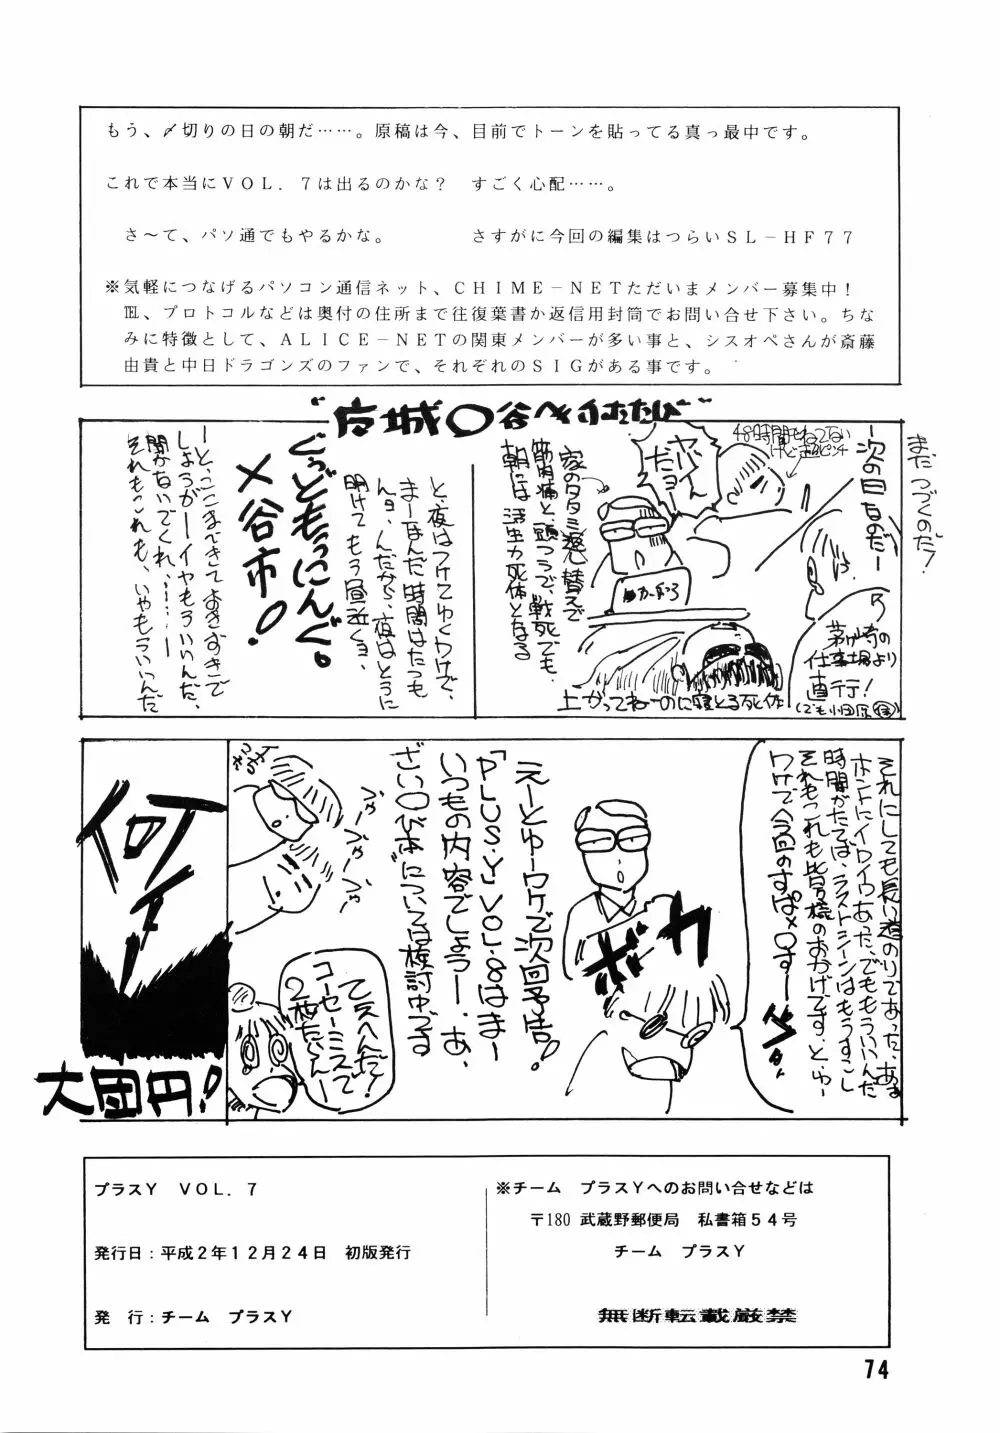 もう、〆切りの日の朝だ……。原稿は今、目前でトーンを貼ってる真っ最中です。
これで本当にＶＯＬ．７は出るのかな？　すごく心配……。
さ～て、パソ通でもやるかな。　さすがに今回の編集はつらいＳＬ－ＨＦ７７
※気軽につなげるパソコン通信ネット、ＣＨＩＭＥ－ＮＥＴただいまメンバー募集中！
℡、プロトコルなどは奥付の住所まで往復葉書か返信用封筒でお問い合せ下さい。ちな
みに特徴として、ＡＬＩＣＥ－ＮＥＴの関東メンバーが多い事と、シスオペさんが斎藤
由貴と中日ドラゴンズのファンで、それぞれのＳＩＧがある事です。
まだつづくのだ！
－次の日なのだ－
48時間もねてない
茅ヶ崎の
仕事場より
直行！
ヤバイんだョん
家のタタミ返し替えで
筋肉痛と、頭つうで、戦死でも、
朝には活動力死体となる
上がってねーのに寝とる死体
と、夜はつけてゆくワケで、
まーほんだ時間はたつも
んョ、んだから、夜はとうに
明けてもう昼近くョ、
ぐっどもっにんぐ。
〆谷市！
－と、ここまできておきすきで
しょうがーイヤもういいんだ、
聞かないでくれ………－
それもこれも、いやもういいんだ
それにしても長い道のりであった、ある
ホントにイロイロあった、でももういいんだ
時間がたてば、ラストシーンはもうすこし
それもこれも皆様のおかげです、とゆー
ワケで今回のすぱ〆〇す－
ボカ
えーとゆーワケで次回予告！
「PLUS・Y」VOL・8はまー
いつもの内容でしょうー、あ、
さい〇び本については検討中づる
乙父へんだ！
コーセーミスで
2枚たんねー
何エ！
大団円！
プラスＹ　ＶＯＬ．７
発行日：平成２年１２月２４日　初版発行
発　行：チーム　プラスＹ
※チーム　プラスＹへのお問い合せなどは
〒180 武蔵野郵便局　私書箱５４号
チーム　プラスＹ
無断転載厳禁
74